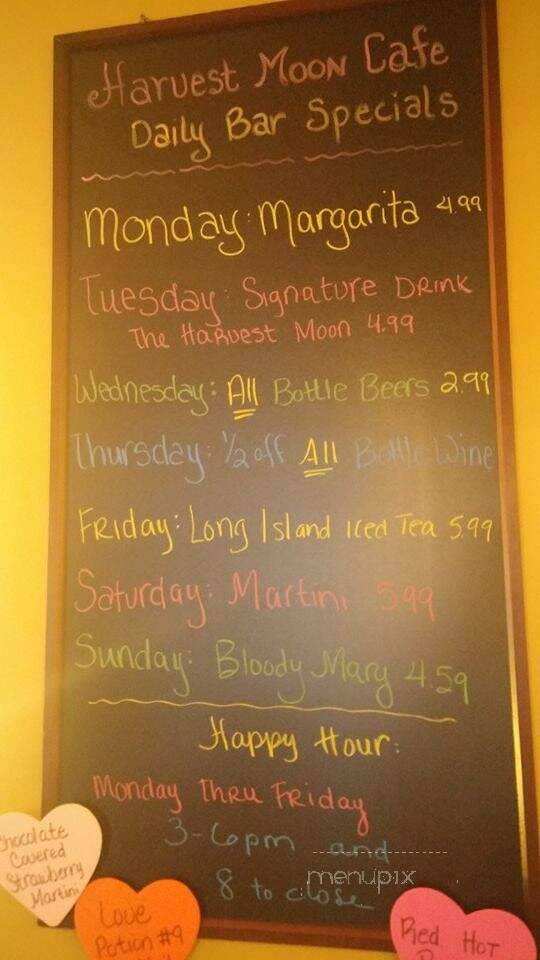 Harvest Moon Cafe
Daily Bar Specials
Monday: Margarita 4.99
Tuesday: Signature Drink
The Harvest Moon 4.99
Wednesday: All Bottle Beers 2.99
Thursday: 1/2 off All Bottle Wine
Friday: Long Island Iced Tea 5.99
Saturday: Martini 5.99
Sunday: Bloody Mary 4.59
Happy Hour:
Monday Thru Friday
3-6pm and
8 to close
menupix
Chocolate
Covered
Strawberry
Martini
Love
Potion #9
Red Hot